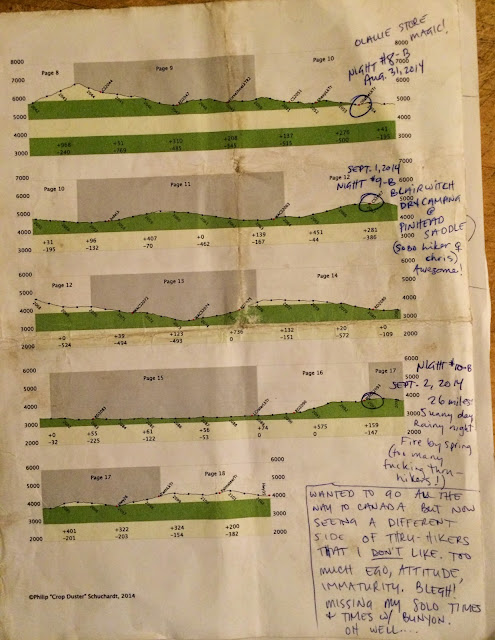 OLALLIE STORE
MAGIC!
NIGHT #8-B
AUG. 31, 2014
8000
7000
6000
5000
4000
3000
Page 8
Page 9
Page 10
8000
7000
6000
5000
4000
3000
+968
-240
+31
-769
+310
-485
+208
-345
+137
-635
+279
-406
+41
-195
SEPT. 1, 2014
NIGHT #9-B
BLAIRWITCH
DRY CAMPING
@
PINHEAD
SADDLE
(SOBO hiker &
chris)
Awesome!
7000
6000
5000
4000
3000
2000
Page 10
Page 11
Page 12
7000
6000
5000
4000
3000
2000
+31
-195
+96
-132
+407
-70
+0
-462
+139
-167
+451
-44
+281
-386
6000
5000
4000
3000
2000
Page 12
Page 13
Page 14
6000
5000
4000
3000
2000
+0
-524
+39
-494
+123
-493
+739
-0
+132
-151
+20
-572
+0
-109
NIGHT #10-B
SEPT. 2, 2014
26 miles
Sunny day
Rainy night
Fire by spring
(too many
fucking thru-
hikers!)
6000
5000
4000
3000
2000
Page 15
Page 16
Page 17
6000
5000
4000
3000
2000
+0
-32
+55
-225
+61
-122
+88
-53
+575
+0
+159
-147
6000
5000
4000
3000
2000
Page 17
Page 18
6000
5000
4000
3000
2000
+401
-201
+322
-203
+324
-154
+200
-382
WANTED TO GO ALL THE
WAY TO CANADA BUT NOW
SEEING A DIFFERENT
SIDE OF THRU-HIKERS
THAT I DON'T LIKE. TOO
MUCH EGO, ATTITUDE,
IMMATURITY. BLEGH!
MISSING MY SOLO TIMES
& TIMES W/ BUNYON.
OH WELL....
©Philip "Crop Duster" Schuchardt, 2014